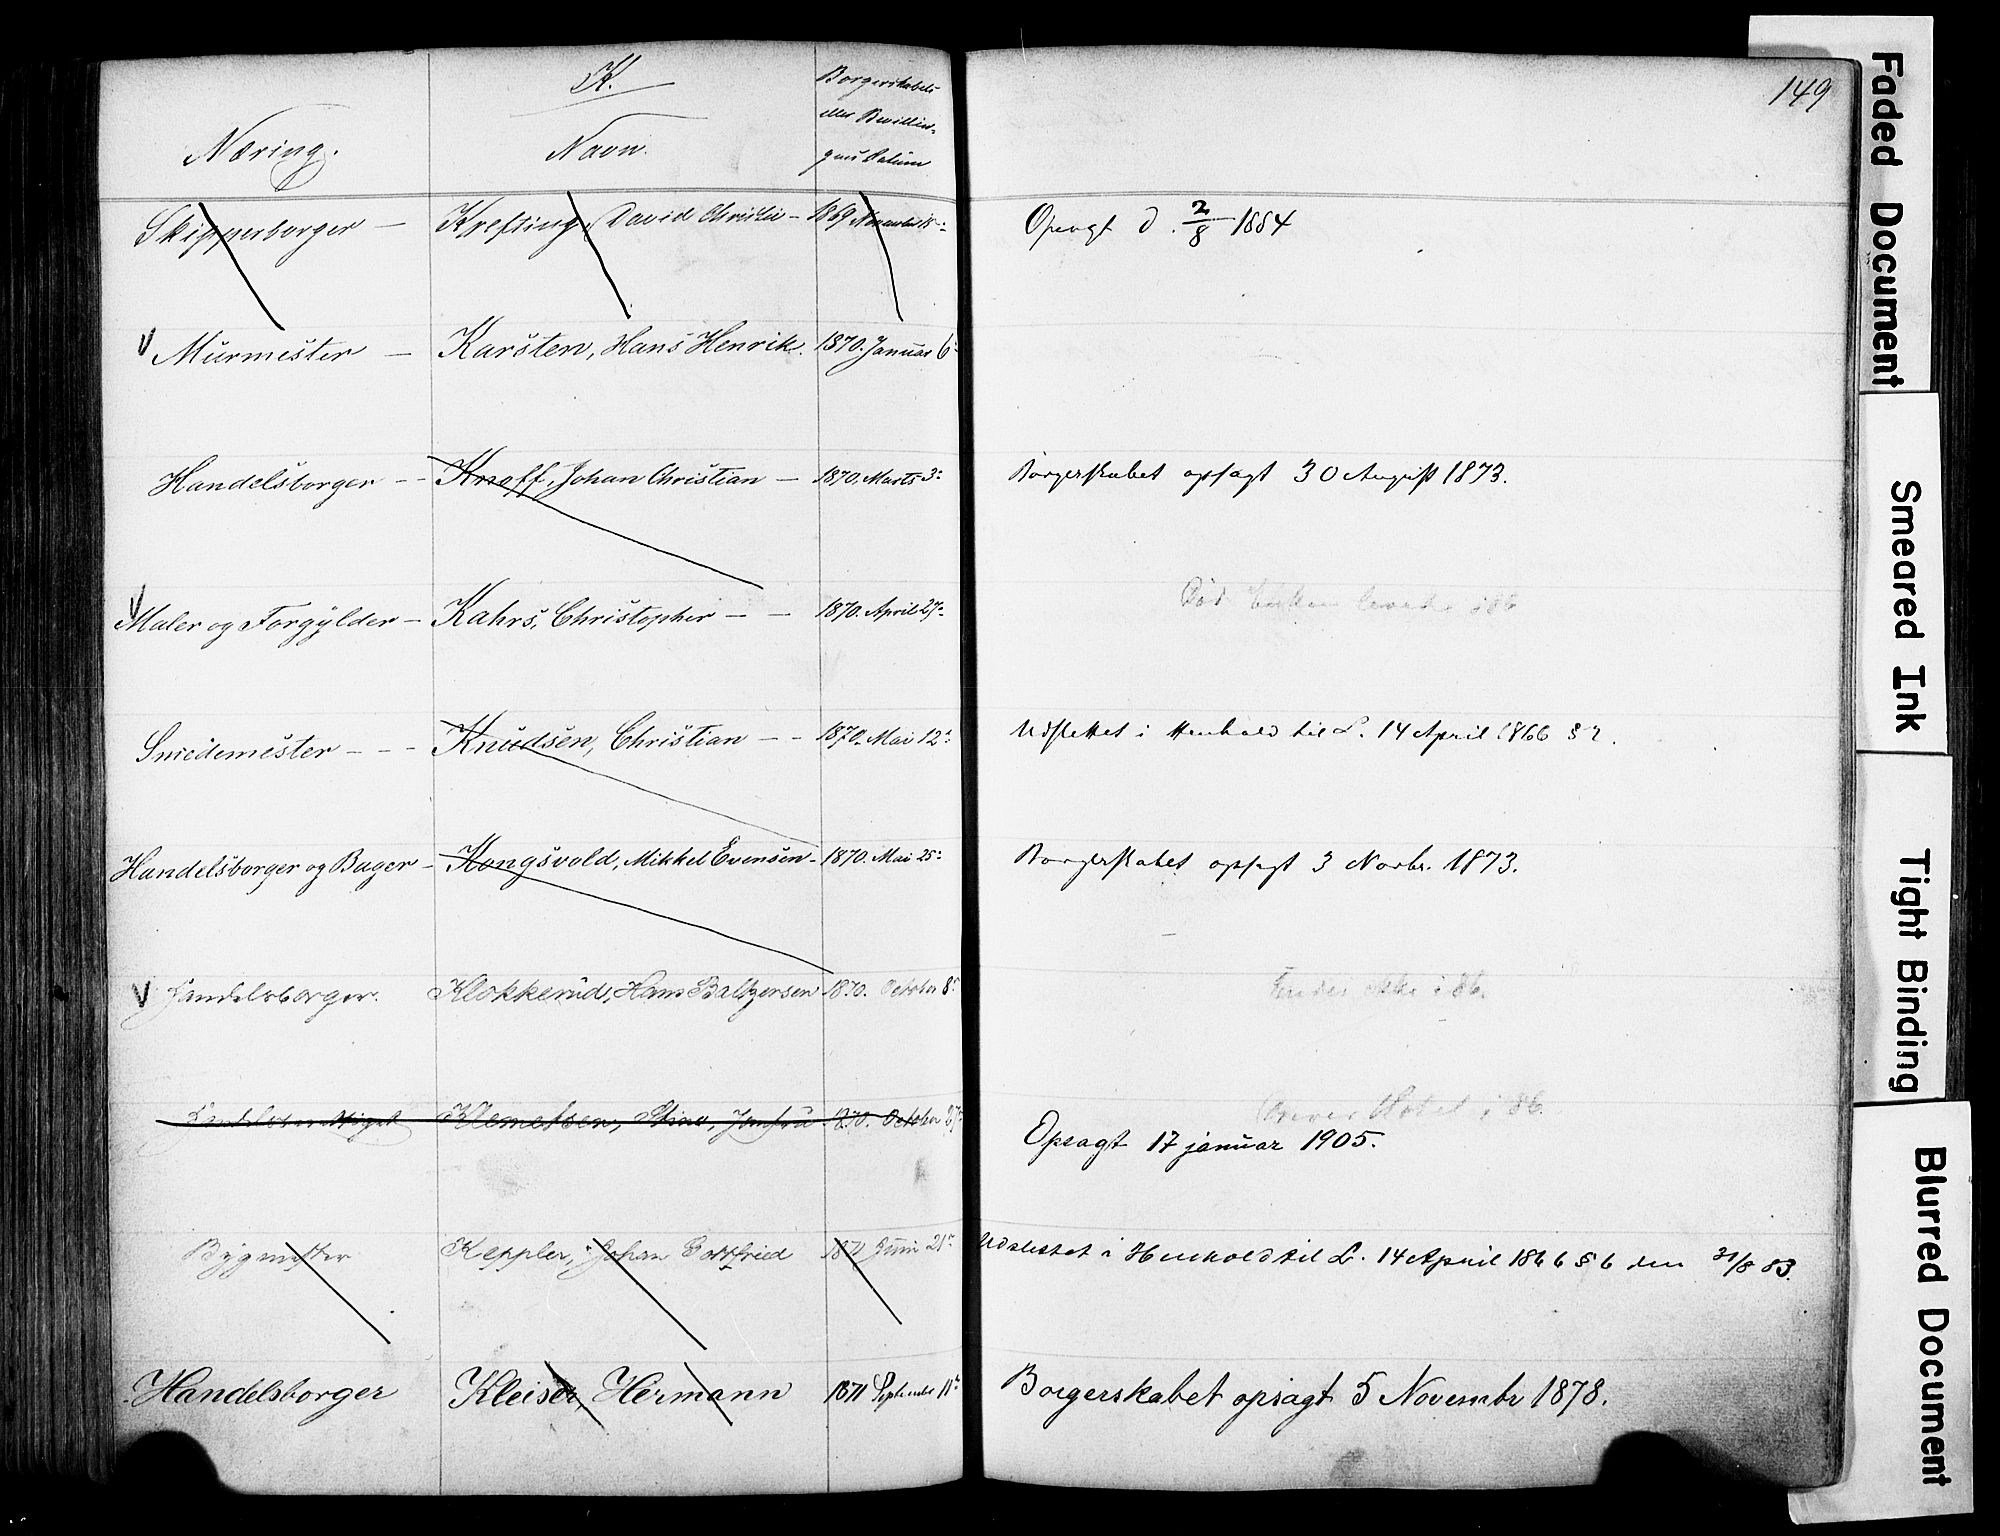 149
K.
Næring.
Navn.
Borgerskabets
eller Bevillin-
gens Datum
Skipperborger — Krefting, David Christie – 1869 November 15. Opsagt d. 2/8 1884
V Murmester — Karsten, Hans Henrik. 1870. Januar 6.
Handelsborger – – Knoff, Johan Christian — 1870. Marts 3. Borgerskabet opsagt 30 August 1873.
V Maler og Forgylder – Kahrs, Christopher – – 1870. April 27. Død. Enken lever i 86
Smedemester – – – Knudsen, Christian – – 1870. Mai 12. Udslettet i Henhold til L. 14 April 1866 § 2.
Handelsborger og Bager – Kongsvold, Mikkel Evensen – 1870. Mai 25. Borgerskabet opsagt 3 Novbr. 1873.
V Handelsborger. Klokkerud, Hans Baltzersen 1870. October 8. Findes ikke i 86.
Klemetsen, Stine, Jomfru 1870. October 27. Hotel i 86
Opsagt 17 januar 1905.
Bygmester Keppler, Johan Gottfried 1871 Juni 21. Udslettet i Henhold til L. 14 April 1866 § 6 den 31/8 83.
Handelsborger Kleiser, Hermann 1871 September 11. Borgerskabet opsagt 5 Novembr 1878.
Faded Document
Smeared Ink
Tight Binding
Blurred Document